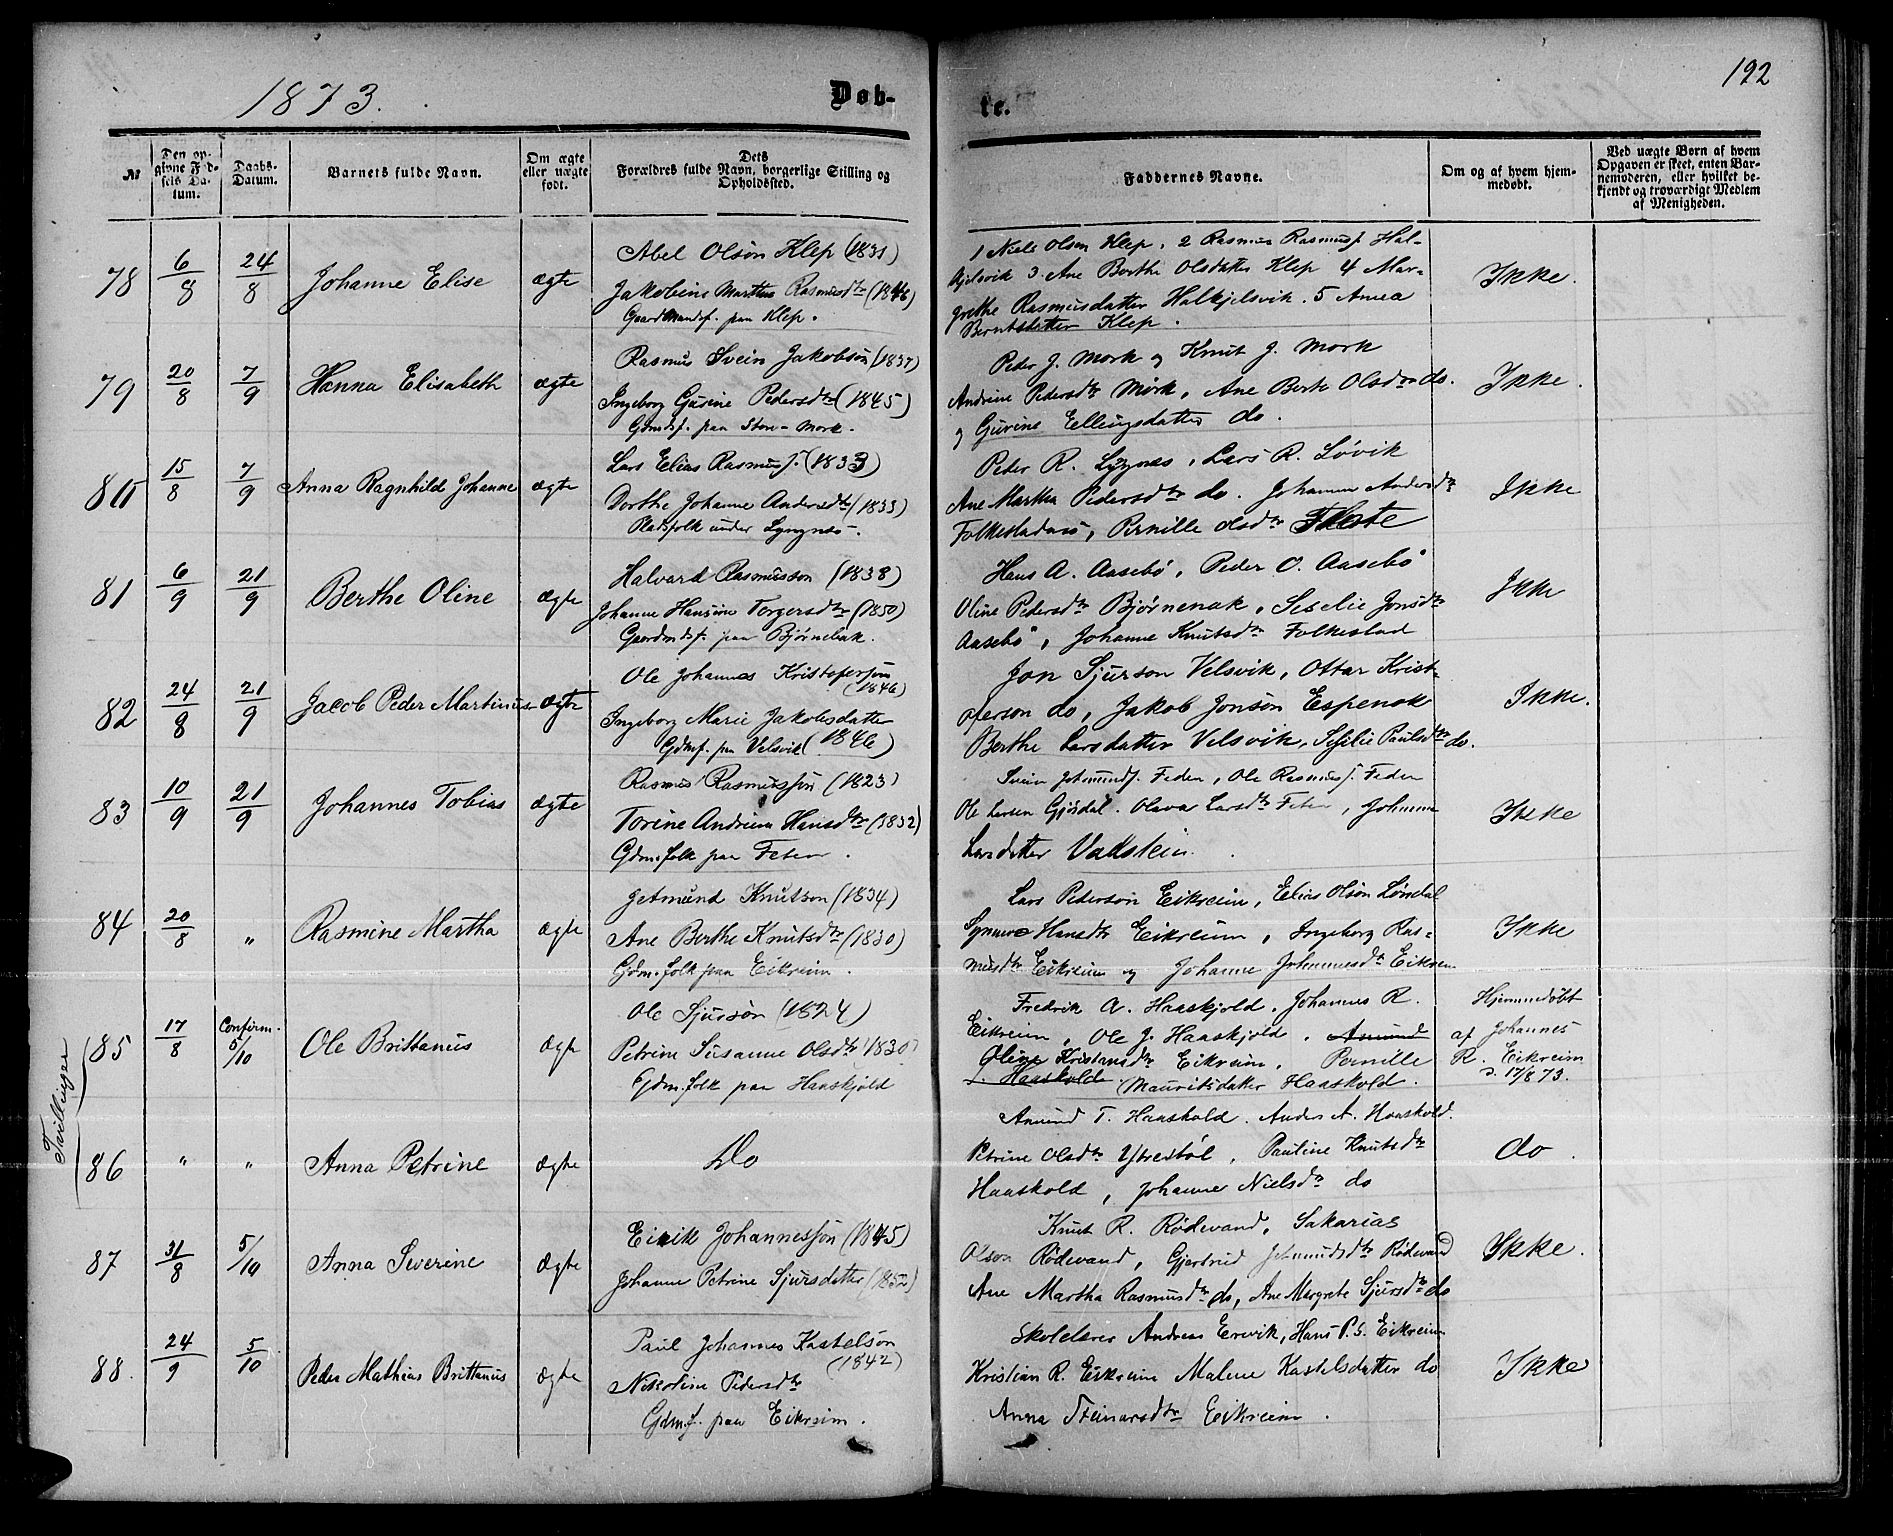 1873.
Døb-
te.
192
№
Den op-
givne Fød-
sels Da-
tum.
Daabs-
Datum.
Barnets fulde Navn.
Om ægte
eller uægte
født.
Dets
Forældres fulde Navn, borgerlige Stilling og
Opholdssted.
Faddernes Navne.
Om og af hvem hjem-
medøbt.
Ved uægte Børn af hvem
Opgaven er skeet, enten Bar-
nemoderen, eller hvilket be-
kjendt og troværdigt Medlem
af Menigheden.
78 6/8 24/8 Johanne Elise ægte
Abel Olson Klep (1831)
Jakobine Marthe Rasmusdtr (1846)
Gaardmandsf. paa Klep.
1 Niels Olsen Klep, 2 Rasmus Rasmusf. Hal-
kjelsvik 3. Ane Berthe Olsdatter Klep 4 Mar-
grethe Rasmusdatter Halkjelsvik. 5 Anna
Berntsdatter Klep.
Ikke.
79 20/8 7/9 Hanna Elisabeth ægte
Rasmus Svein Jakobson (1837)
Ingeborg Gurine Pedersdtr (1845)
Gdmdsf. paa Store-Mork.
Peder J. Mork og Knut J. Mork
Andrine Pedersdtr Mork, Ane Berte Olsdtr do.
og Gurine Ellingsdatter do.
Ikke.
80 15/8 7/9 Anna Ragnhild Johanne ægte
Lars Elias Rasmusf. (1833)
Dorthe Johanne Andersdtr (1833)
Pladsfolk under Lyngnes.
Peder R. Lyngnes, Lars R. Løvik
Ane Martha Pedersdtr do. Johanne Andersdtr
Folkestadnes, Pernille Olsdtr
Ikke
81 6/9 21/9 Berthe Oline ægte
Halvard Rasmusson (1838)
Johanne Hansine Torgersdtr (1850)
Gaardmdsf. paa Bjørnenak.
Hans A. Aasebø, Peder O. Aasebø
Oline Pedersdtr Bjørnenak, Seselie Jonsdtr
Aasebø, Johanne Knutsdtr Folkestad
Ikke
82 24/8 21/9 Jacob Peder Martinus ægte
Ole Johannes Kristofersøn
(1846)
Ingeborg Marie Jakobsdatter
Gdmf. paa Velsvik (1846)
Jon Sjurson Velsvik, Ottar Krist-
oferson do, Jakob Jonson Espenak
Berthe Larsdatter Velsvik, Sesilie Paulsdtr do.
Ikke.
83 10/9 21/9 Johannes Tobias ægte
Rasmus Rasmussøn (1823)
Torine Andrine Hansdtr (1832)
Gdm.folk paa Feten.
Svein Jetmundf. Feden, Ole Rasmusf. Feden
Ole Larsen Gjørdal. Olava Larsdtr Feten, Johanne
Larsdatter Vatstein.
Ikke
84 20/8 " Rasmine Martha ægte
Jetmund Knutson (1834)
Ane Berthe Knutsdtr (1830)
Gdm.folk paa Eikreim.
Lars Pederson Eikreim, Elias Olson Løndal
Synnøve Hansdtr Eikreim, Ingeborg Ras-
musdtr Eikreim og Johanne Johannesdtr Eikreim
Ikke
Tvillinger
85 17/8 Confirm. 5/10 Ole Brittanus ægte
Ole Sjurson (1824)
Petrine Susanne Olsdtr 1830
Gdm.folk paa Haaskjold
Fredrik A. Haaskjold, Johannes R.
Eikreim, Ole J. Haaskjold, Amund
Oline Kristansdtr Eikreim, Pernille
T. Haaskold Mauritsdatter Haaskold.
Hjemmedøbt
af Johannes
R. Eikreim
d. 17/8 73.
86 " " Anna Petrine ægte
Do
Amund T. Haaskold. Anders A. Haaskold.
Petrine Olsdtr Ytrestøl, Pauline Knutsdtr
Haaskold, Johanne Nielsdtr do
do.
87 31/8 5/10 Anna Severine ægte
Eirik Johannessøn (1845)
Johanne Petrine Sjursdatter (1852)
Knut R. Rødevand, Sakarias
Olson Rødevand, Gjertrud Jetmundsdtr Rødevand
Ane Martha Rasmusdtr do, Ane Margrete Sjursdtr do
Ikke.
88. 24/9 5/10 Peder Mathias Brittanus ægte
Paul Johannes Kastelson
(1842)
Nikoline Pedersdtr
Gdm.f. paa Eikreim.
Skolelærer Andreas Ervik, Hans P. S. Eikreim
Kristian R. Eikreim Malene Kastelsdatter do
Anna Steinarsdtr Eikreim.
Ikke